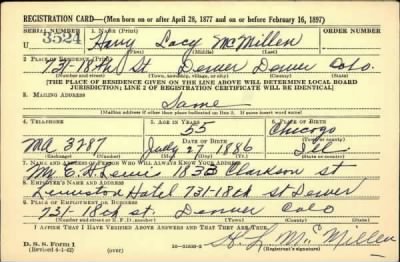 REGISTRATION CARD—(Men born on or after April 28, 1877 and on or before February 16, 1897)
SERIAL NUMBER 1. NAME (Print) ORDER NUMBER
3524 Harry Lacy McMillen
(First) (Middle) (Last)
2. PLACE OF RESIDENCE (Print)
731-18th St Denver Denver Colo.
(Number and street) (Town, township, village, or city) (County) (State)
[THE PLACE OF RESIDENCE GIVEN ON THE LINE ABOVE WILL DETERMINE LOCAL BOARD
JURISDICTION; LINE 2 OF REGISTRATION CERTIFICATE WILL BE IDENTICAL]
3. MAILING ADDRESS
Same
[Mailing address if other than place indicated on line 2. If same insert word same]
4. TELEPHONE 5. AGE IN YEARS 6. PLACE OF BIRTH
55 Chicago
MA 3287 DATE OF BIRTH (Town or county)
July 27 1886 Ill
(Exchange) (Number) (Mo.) (Day) (Yr.) (State or country)
7. NAME AND ADDRESS OF PERSON WHO WILL ALWAYS KNOW YOUR ADDRESS
Mr. E. H. 1835 Clarkson st
8. EMPLOYER'S NAME AND ADDRESS
Hotel 731-18th st Denver
9. PLACE OF EMPLOYMENT OR BUSINESS
731-18th st Denver Colo
(Number and street or R. F. D. number) (Town) (County) (State)
I AFFIRM THAT I HAVE VERIFIED ABOVE ANSWERS AND THAT THEY ARE TRUE.
D. S. S. Form 1
(Revised 4-1-42) (over) H. L. McMillen
(Registrant's signature)